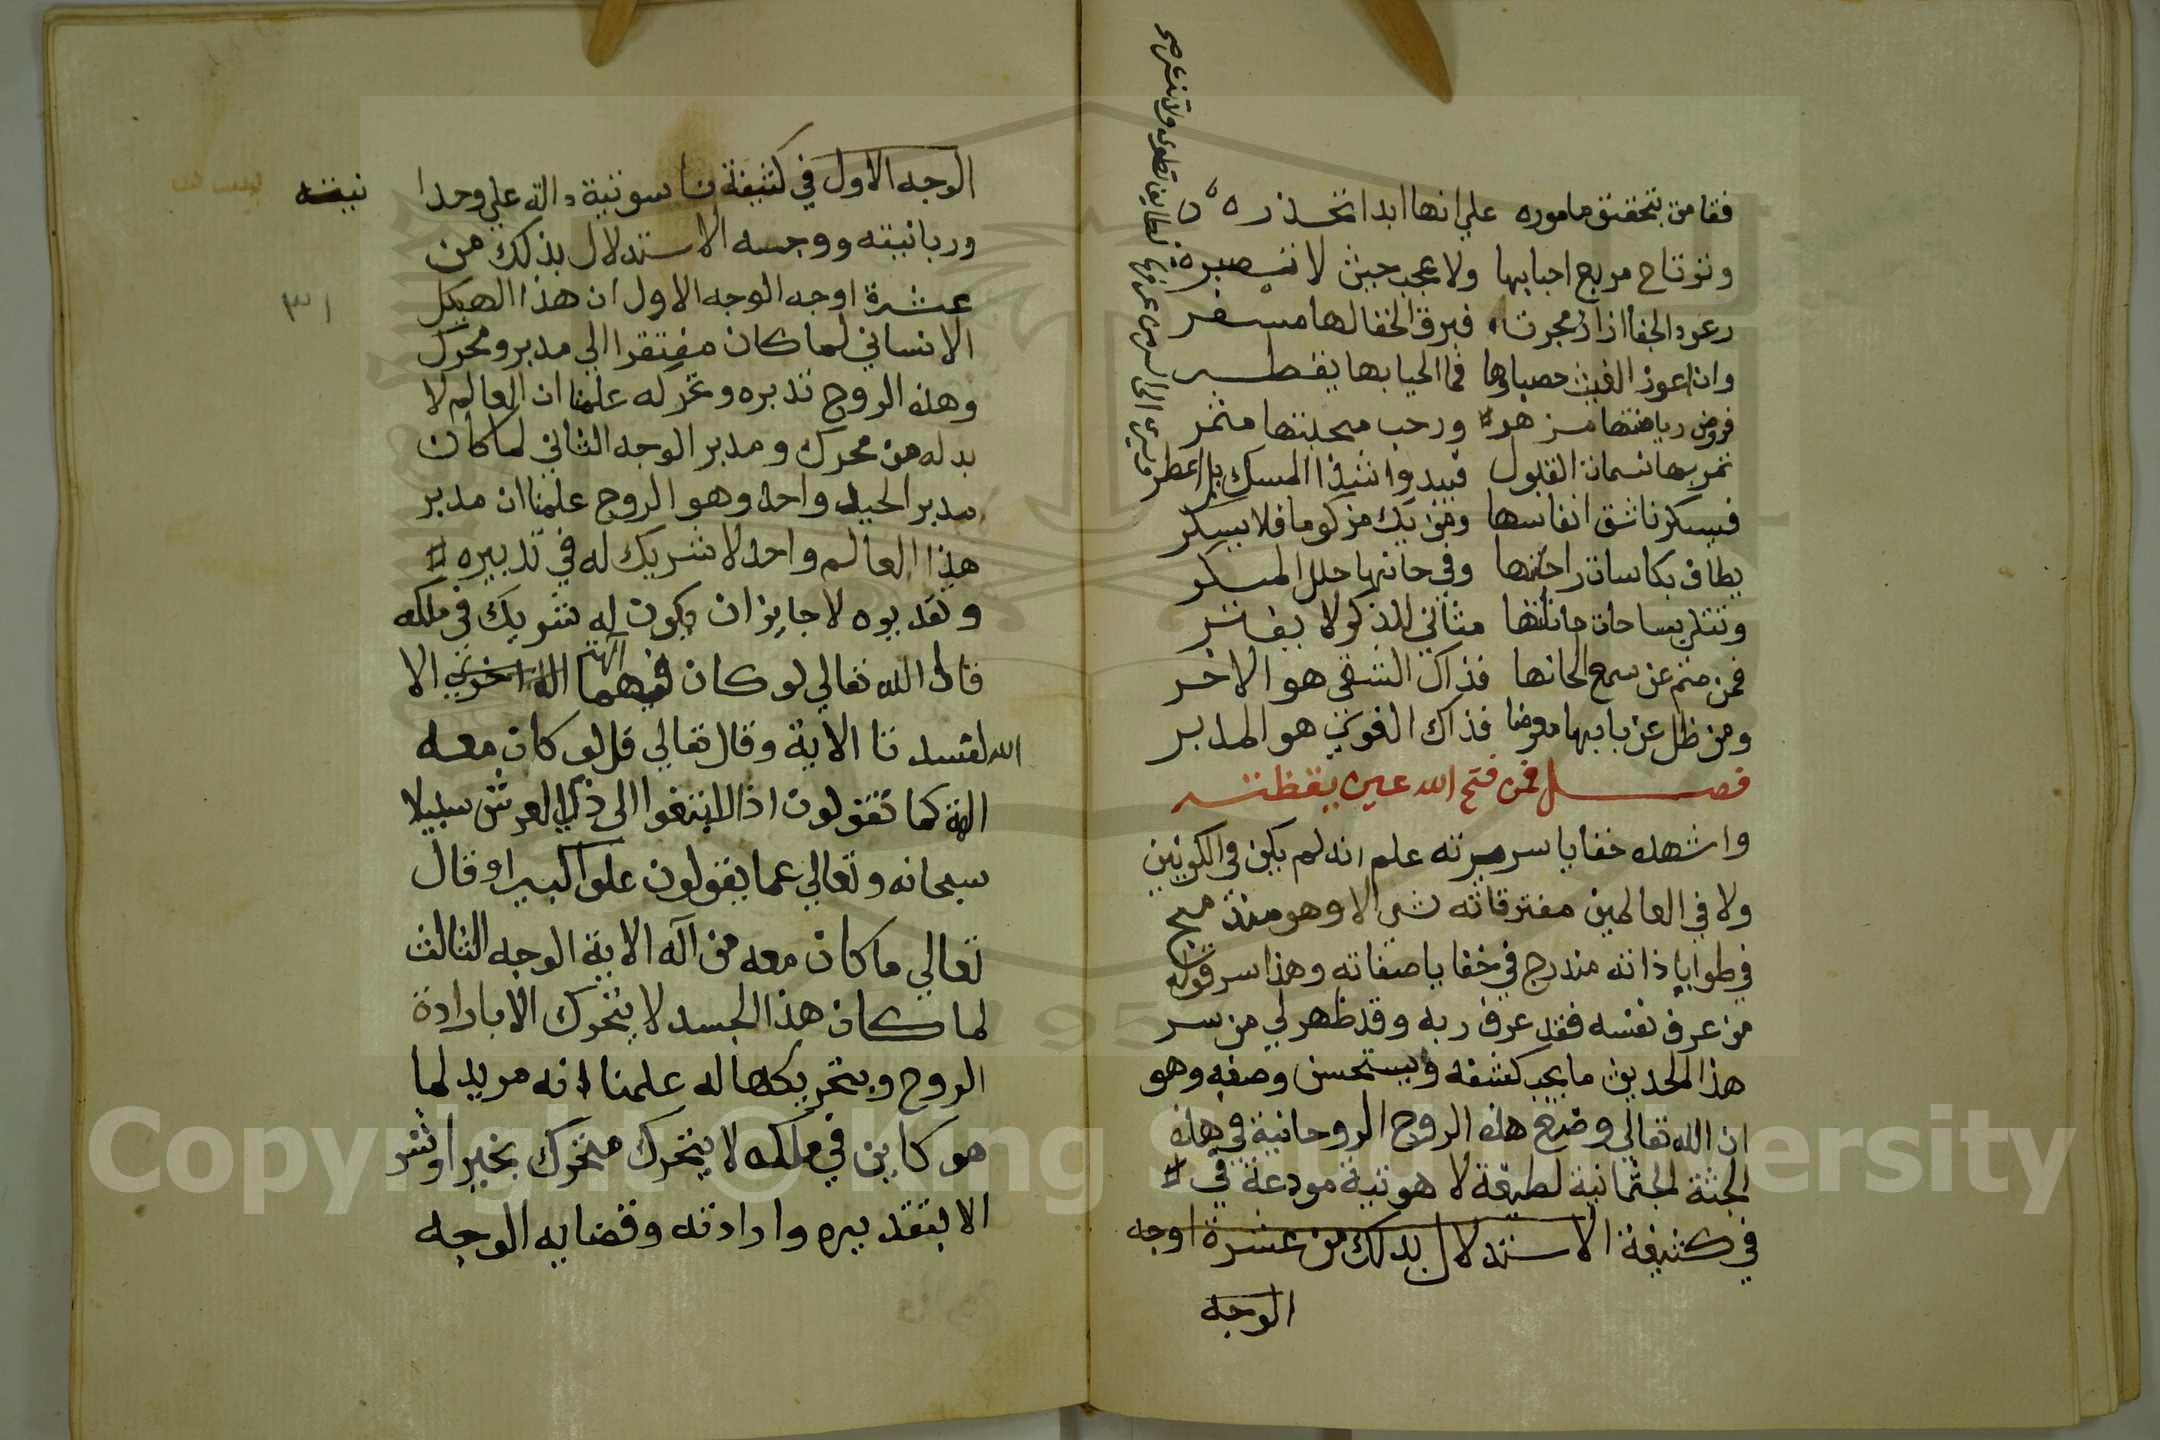 فقامت بتحقيق ماموره على انها ابدا تحذر
وترتاح من ريح احبابها ولا عجب حيث لا تصبر
رعود الجفا اذا زمجرت فبرق الخفا لها مسفر
وان اعوز الغيث حصباوها فما الحيا بها يقطر
فروض رياضتها مزهر ورحب محبتها مثمر
تمر بها نسمات القبول فيبدوا شذا المسك بل اعطر
فيسكر ناشق انفاسها ومن يك مزكوما فلا يسكر
يطاف بكاسات راحتها وفي حانها حلل المسكر
وتتلى بساحات حاناتها مثاني للذكر لا تفتر
فمن صم عن سمع الحانها فذاك الشقي هو الاخسر
ومن ظل عن بابها معرضا فذاك الغوي هو المدبر
فصل فمن فتح الله عين يقظته
واشهده خفايا سريرته علم انه لم يكن في الكونين
ولا في العالمين مفترقاته شي الا وهو مندمج
في طوايا ذاته مندرج في خفايا صفاته وهذا سر قوله
من عرف نفسه فقد عرف ربه وقد ظهر لي من سر
هذا الحديث ما يجب كشفه ويستحسن وصفه وهو
ان الله تعالى وضع هذه الروح الروحانية في هذه
الجثة الجثمانية لطيفة لا هوتية مودعة في
في كثيفة الاستدلال بذلك من عشرة اوجه
الوجه
الوجه الاول في كثيفة ناسوتية دالة علي وحدا
نيته
وربانيته ووجه الاستدلال بذلك من
عشرة اوجه الوجه الاول ان هذا الهيكل
٣١
الانساني لما كان مفتقرا الي مدبر ومحرك
وهذه الروح تدبره وتحركه علمنا ان العالم لا
بد له من محرك ومدبر الوجه الثاني لما كان
مدبر الجسد واحد وهو الروح علمنا ان مدبر
هذا العالم واحد لا شريك له في تدبيره
وتقديره لا جايز ان يكون له شريك في ملكه
قال الله تعالي لو كان فيهما الهة الا
الله لفسدتا الاية وقال تعالي قل لو كان معه
الهة كما تقولون اذا لابتغوا الى ذي العرش سبيلا
سبحانه وتعالي عما يقولون علوا كبيرا وقال
تعالي ما كان معه من اله الاية الوجه الثالث
لما كان هذا الجسد لا يتحرك الا بارادة
الروح وبتحريكها له علمنا انه مريد لما
هو كاين في ملكه لا يتحرك متحرك بخير او شر
الا بتقديره وارادته وقضايه الوجه